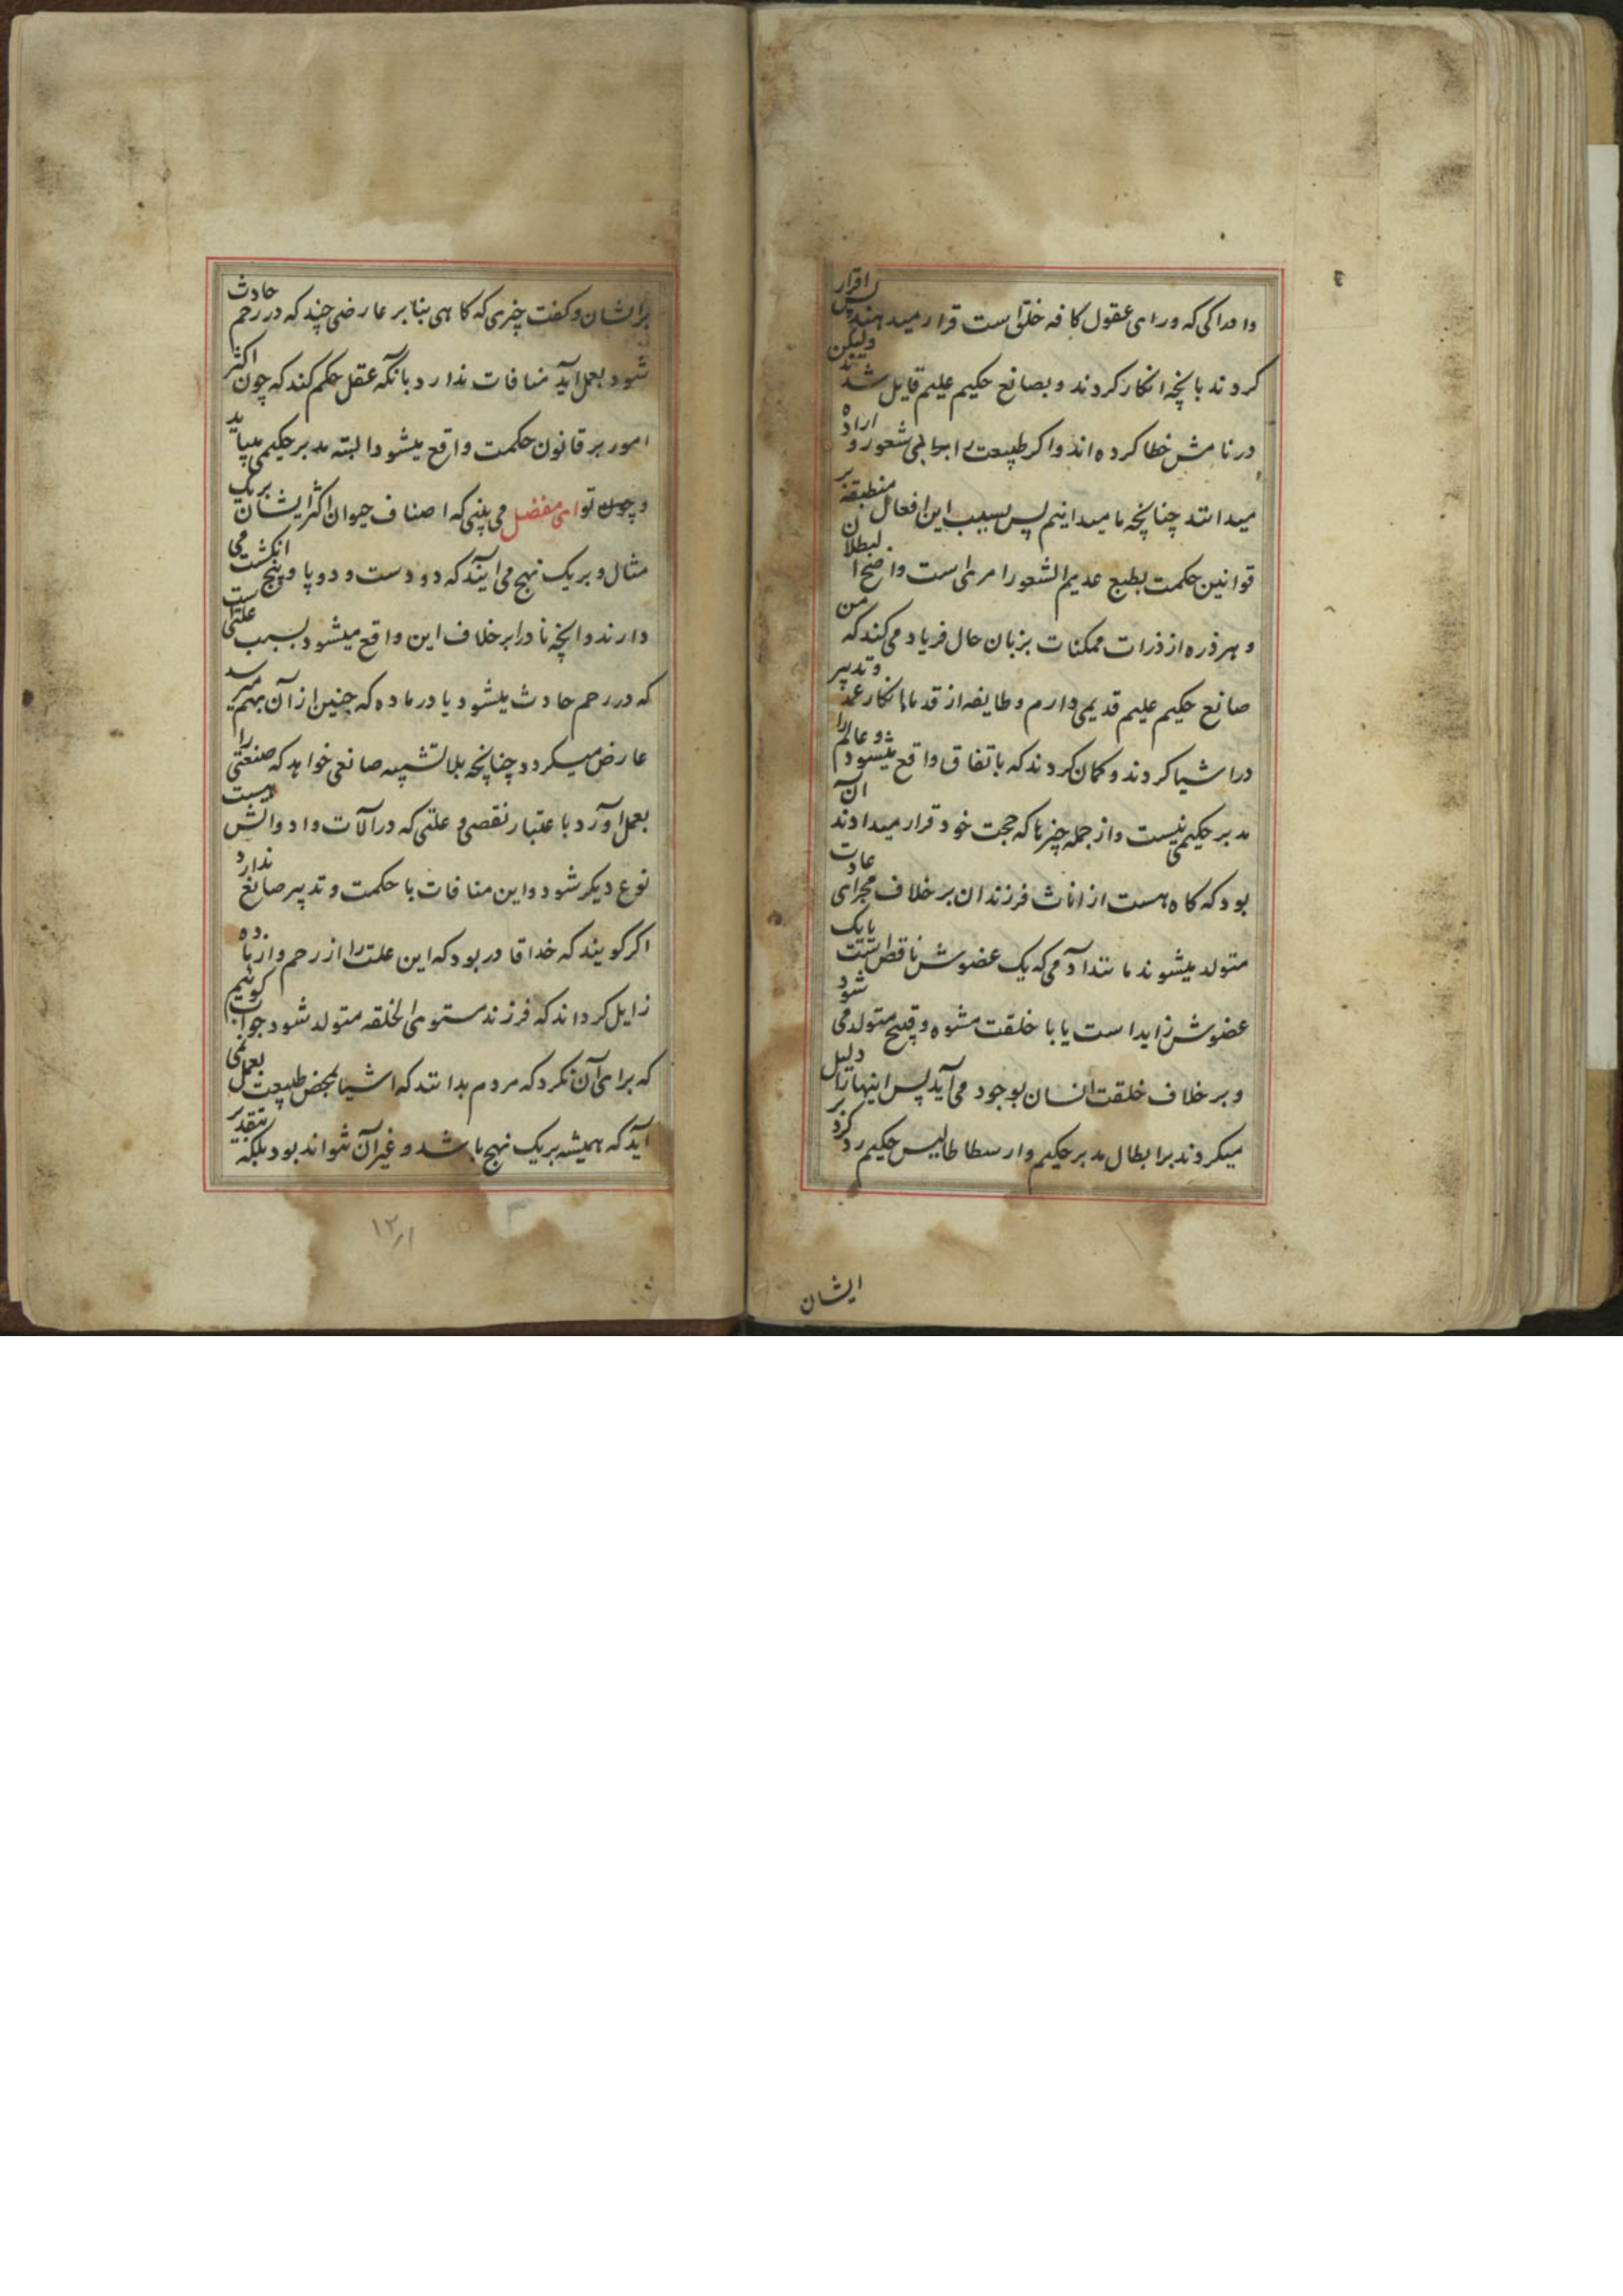 وادراکی که ورای عقول کافه خلق است قرار میدهند پس اقرار
کردند بانچه انکار کردند و بصانع حکیم علیم قایل شدند ولیکن
در نامش خطا کرده اند و اگر طبیعت را بی شعور و اراده
میدانند چنانچه ما میدانیم پس بسبب این افعال منطبقه بر
قوانین حکمت بطبع عدیم الشعور امریست واضح البطلان
و هر ذره از ذرات ممکنات بزبان حال فریاد می کند که من
صانع حکیم علیم قدیمی دارم و طایفه از قدما انکار عمد و تدبیر
در اشیا کردند و کمان کردند که باتفاق واقع میشود و عالم را
مدبر حکیمی نیست و از جمله چیزها که حجت خود قرار میدادند آن
بود که کاه هست از اناث فرزندان بر خلاف مجرای عادت
متولد میشوند مانند آدمی که یک عضوش ناقص است یا یک
عضوش زاید است یا با خلقت مشوه و قبیح متولد می شود
و بر خلاف خلقت انسان بوجود می آید پس اینها را دلیل
میکردند بر ابطال مدبر حکیم و ارسطاطالیس حکیم رد کرد بر
ایشان
بر ایشان و کفت چیزی که کاهی بنابر عارضی چند که در رحم حادث
شود بعمل آید منافات ندارد بآنکه عقل حکم کند که چون اکثر
امور بر قانون حکمت واقع میشود البته مدبر حکیمی میباید
و چون تو ای مفضل می بینی که اصناف حیوان اکثر ایشان بریک
مثال و بریک نهج می آیند که دو دست و دو پا و پنج انکشت می
دارند و انچه نادرا بر خلاف این واقع میشود بسبب علتی است
که در رحم حادث میشود یا در ماده که جنین از آن بهم میرسد
عارض میکردد چنانچه بلا تشبیه صانعی خواهد که صنعتی را
بعمل آورد باعتبار نقصی و علتی که در آلات و ادواتش هست
نوع دیکر شود و این منافات با حکمت و تدبیر صانع ندارد
اکر کویند که خدا قادر بود که این علت را از رحم و از ماده
زایل کرداند که فرزند مستوی الخلقه متولد شود جواب کوئیم
که برای آن نکرد که مردم بدانند که اشیا بمحض طبیعت بعمل نمی
آید که همیشه بریک نهج باشد و غیر آن نتواند بود بلکه بتقدیر
۱۲